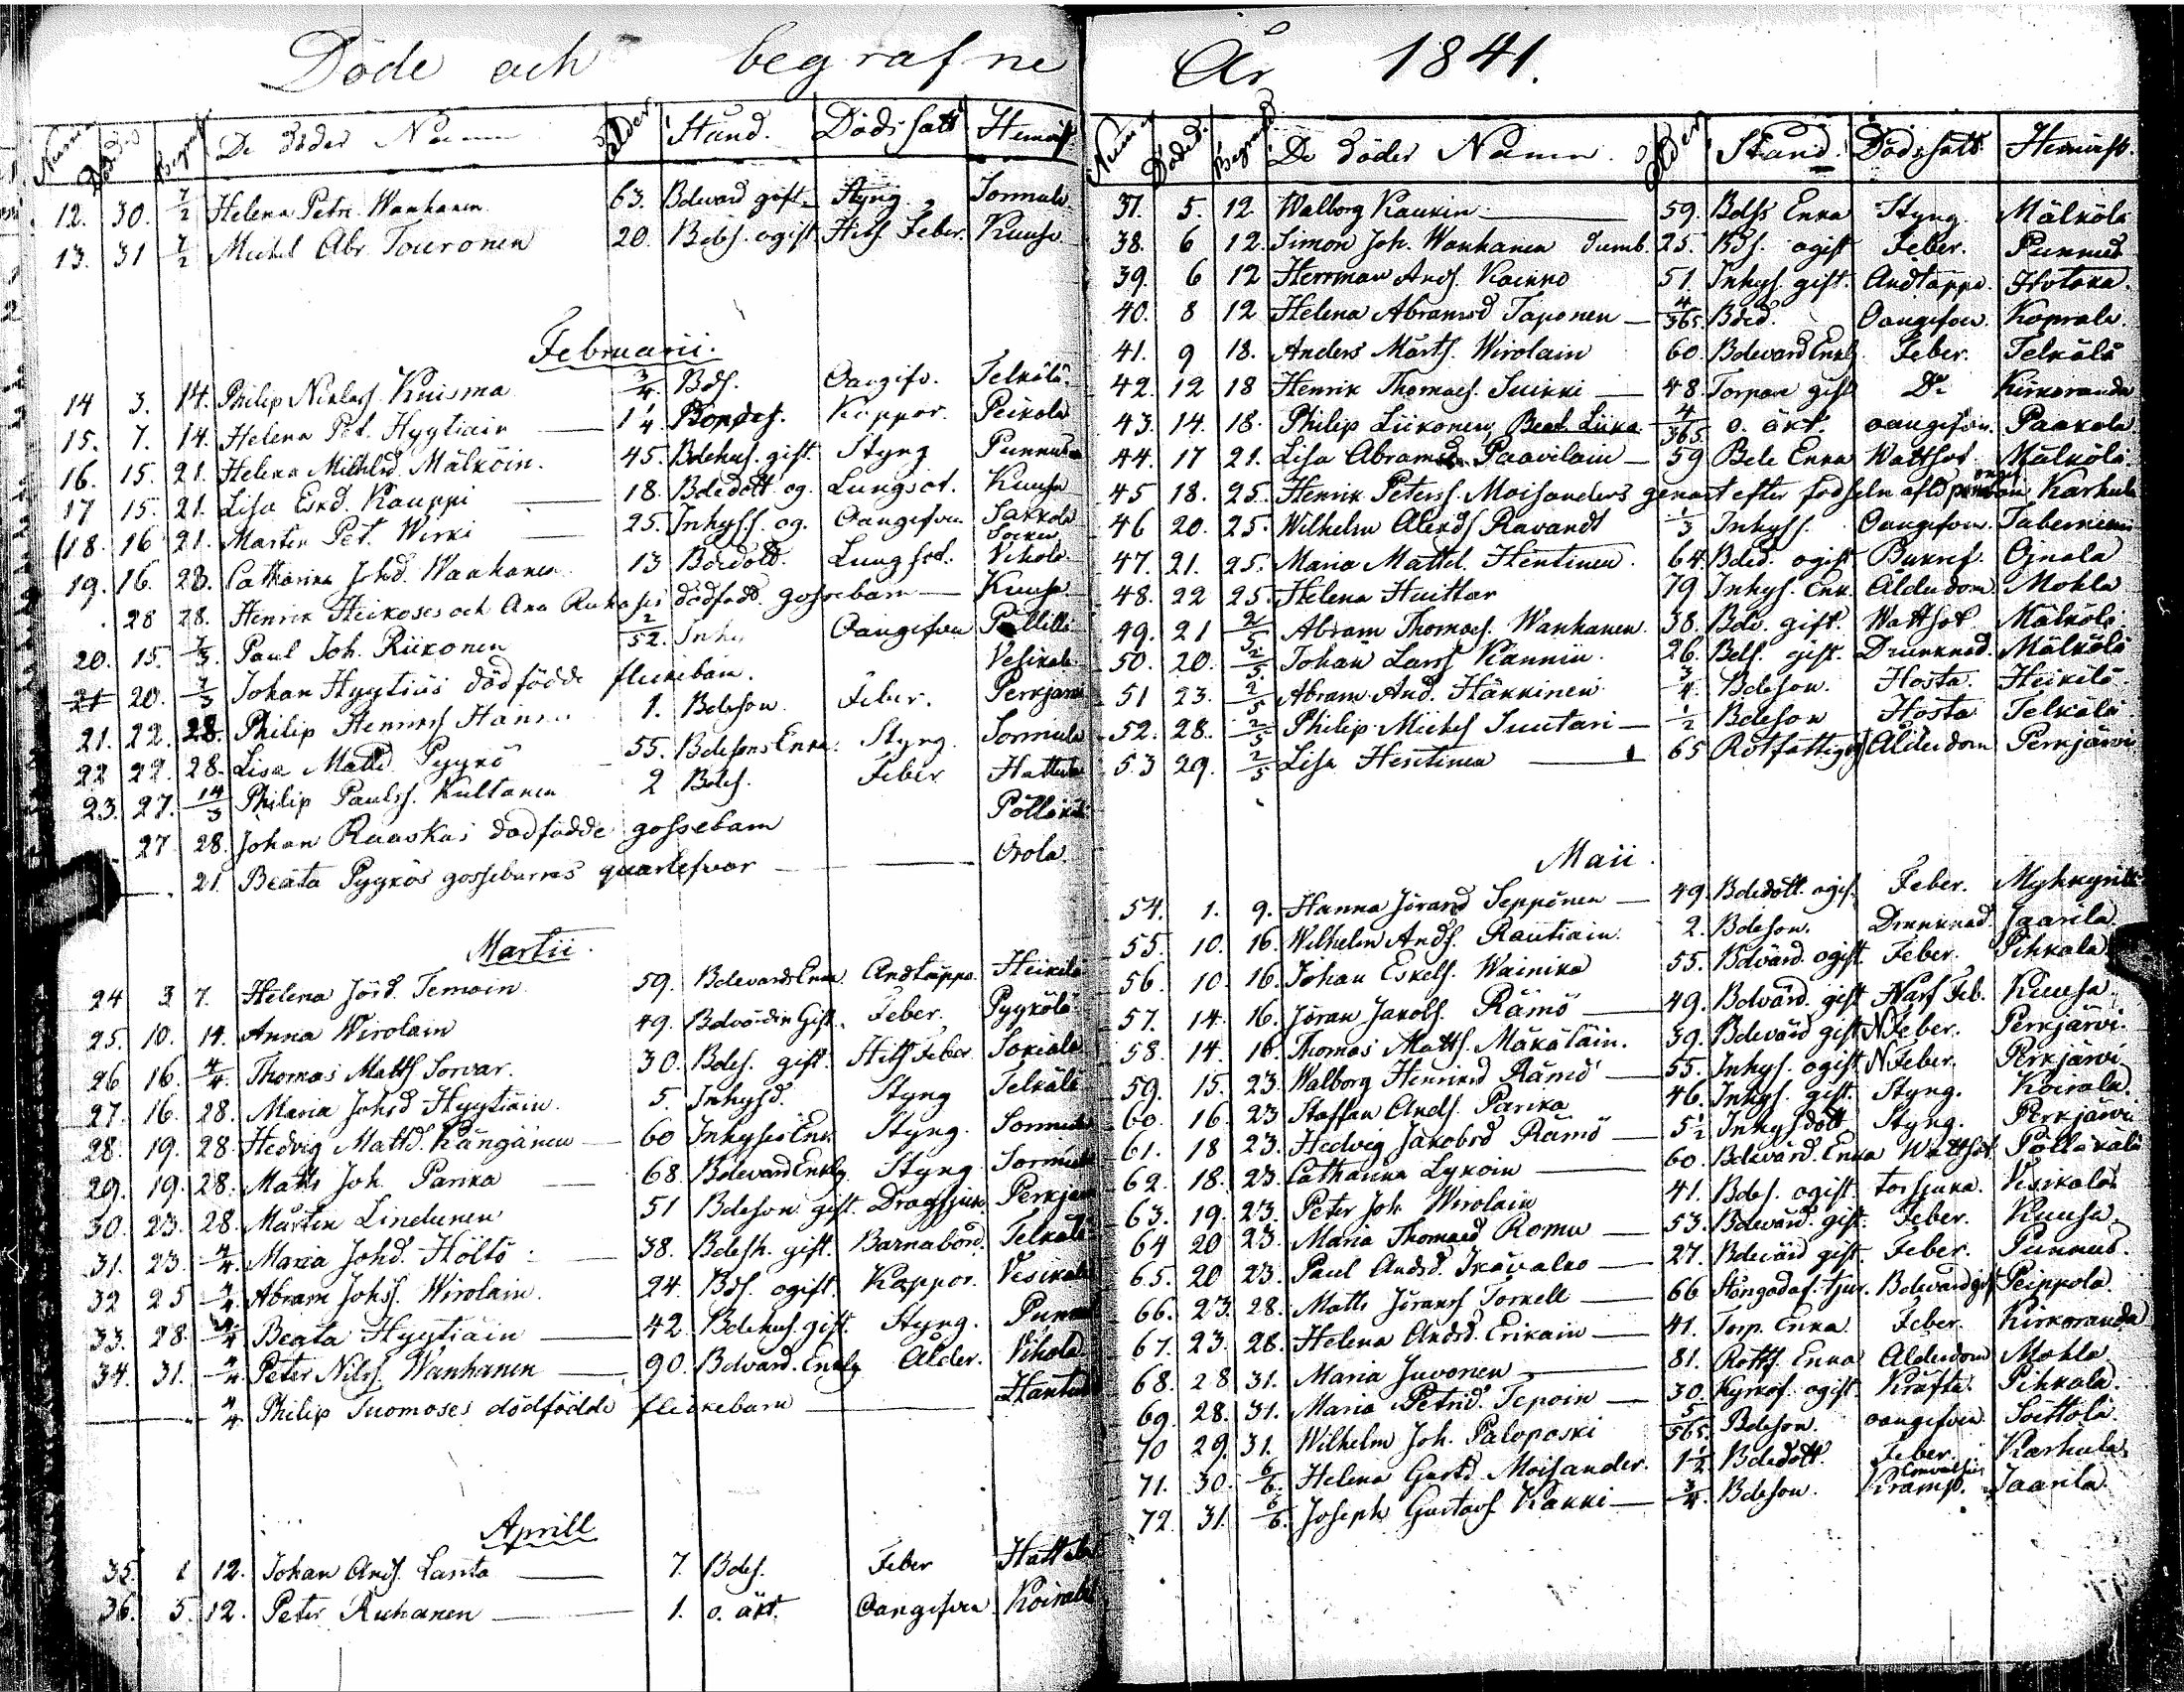 Döde och begrafne
Num Döde Begraf De döder Namn Ålder Stånd. Dödssätt Hemvist
12. 30. 7/2 Helena Petri Wanhanen 63. Bdevärd gift Styng Sormula
13. 31 7/2 Michel Abr Touronen 20. Bdes. ogift Hits Feber. Kuusa
Februarii.
14 3. 14. Philip Niklass Kuisma 3/4 Bds. Oangifv. Telkälä
15. 7. 14. Helena Pet. Hyytiäin 1 1/4 Koppor. Peikola
16. 15. 21. Helena Mälköin. 45. Bdehus. gift Styng Punnus
17 15. 21. Lisa Esrd. Kauppi 18. Bdedott. og. Lungsot. Kuusa
18. 16 21. Martin Pet. Wirki 25. Inhyss. og. Oangifven Sakkola Socken
19. 16. 28. Catharina Johd. Wanhanen 13 Bdedott. Lungsot. Vihola
28 28. Henrik Heikoses och Ana dödfödd gossebarn Kuusa
20. 15. 7/3 Paul Joh. Riikonen 2/52. Inhy Oangifven Pällilä
21 20. 7/3 Johan Hyytiäs dödfödde flickebarn. Vesikala
21. 22. 28. Philip Henrikss Hänni 1. Bdeson Feber. Perkjärvi
22 22. 28. Lisa Mattd. Pyykö 55. Bdesons Enka. Styng. Sormula
23. 27. 14/3 Philip Paulss. Kultanen 2 Bdes. Feber Hattula
27 28. Johan Raaskas dödfödde gossebarn Pölläkälä
21. Beata Pyykös gossebarnes quarlefvor Orola
Martii.
24 3 7. Helena Jörd. Temoin 59. Bdevärds Enka Andtäppa. Heikilä
25. 10. 14. Anna Wirolain 49. Bdevärdin Gift. Feber. Pyykölä
26 16. 4/4. Thomas Matts Sorvar. 30. Bdes. gift. Hits Feber. Sokiala
27. 16. 28. Maria Johsd Hyytiäin. 5. Inhysd. Styng Telkälä
28. 19. 28. Hedvig Mattd. Kängänen 60 Inhyses Enk Styng. Sormula
29. 19. 28. Matts Joh. Parika 68. Bdevärd Enklg Styng. Sormula
30. 23. 28. Mårten Lindunen 51 Bdeson gift. Dragsjuk. Perkjärvi
31. 23. 4/4. Maria Johd. Höltö 38. Bdesh. gift. Barnabörd. Telkälä
32 25 4/4. Abram Johss. Wirolain. 24. Bds. ogift. Koppor. Vesikala
33. 28. 4/4 Beata Hyytiäin 42. Bdehus. gift. Styng. Punnus
34. 31. 4/4 Peter Nilss. Wanhanen 90. Bdvärd. Enklg Ålder. Vihola
4/4 Philip Tuomoses dödfödde flickebarn
Aprill
35. 1 12. Johan Ands. Lanta 7. Bdes. Feber Hattula
36. 5. 12. Peter Ruhanen 1. o. äkt. Oangifven Koirala
År 1841.
Num Döde Begraf De döder Namn. Ålder Stånd. Dödssätt Hemvist.
37. 5. 12 Walborg Kaukin 59. Bdss Enka Styng. Mälkölä
38. 6 12. Simon Joh. Wanhanen dumb. 25. Bds. ogift Feber. Punnus
39. 6 12 Herrman Ands. Kaukko 51. Inhys. gift. Andtäppa. Hotaka.
40. 8 12 Helena Abramsd Taponen 4/365. Bded. Oangifven. Koprala.
41. 9 18. Anders Märts. Wirolain 60. Bdevärd Enklg. Feber. Telkälä
42. 12 18 Henrik Thomass. Suikki 48. Torpare gift Do Kirkoranda
43. 14. 18. Philip Liikonen, Beat. Liika 4/365. o. äkt. oangifven. Paakola
44. 17 21. Lisa Abramsd Paavilain 59 Bde Enka Wattsot. Mälkölä.
45 18. 25. Henrik Peterss. Moisanders genast efter födseln afled Karhula
46 20. 25. Wilhelm Alexds Ravandt 1/3 Inhyss. Oangifven.
47. 21. 25. Maria Mattd. Hentinen. 64. Bded. ogift Bukref. Ojnala
48. 22 25. Helena Huittar 79 Inhys. Enk. Ålderdom Mohla
49. 21 2/5 Abram Thomass. Wanhanen. 38. Bdv. gift. Wattsot Mälkölä
50. 20. 2/5. Johan Larss Känniin. 26. Bdes. gift. Drunknad. Mälkölä
51 23. 2/5 Abram And. Häkkinen 3/4. Bdeson. Hosta. Heikilä.
52. 28. 2/5 Philip Michs Suutari 1/2 Bdeson Hosta Telkälä
53 29. 2/5 Lisa Hentinen 65 Rotfattig Ålderdom Perkjärvi
Maii.
54. 1. 9. Hanna Jörand Seppönen 49. Bdedott. ogif. Feber. Mykkyrilä
55. 10. 16. Wilhelm Ands. Rautiain. 2. Bdeson. Drunknad. Jaarila
56. 10. 16. Johan Eskels. Wainika 55. Bdvärd. ogift. Feber. Pihkala
57. 14. 16. Jöran Jakobs. Rämö 49. Bdvärd. gift Narf Feb. Kuusa.
58. 14. 16. Thomas Matts. Mäkäläin. 39. Bdevärd gift N Feber. Perkjärvi.
59. 15. 23. Walborg Henriksd Rämö 55. Inhys. ogift N Feber. Perkjärvi
60. 16. 23 Staffan Ands. Parika 46. Inhys. gift. Styng. Koirala.
61. 18 23. Hedvig Jakobsd Rämö 5 1/2 Inhysdott. Styng. Perkjärvi
62. 18. 23. Catharina Lykoin 60. Bdevärd. Enka Wattsot Pölläkälä
63. 19. 23. Peter Joh. Wirolain 41. Bdes. ogift. Vesikala
64 20 23. Maria Thomasd Romu 53. Bdevärd. gift. Feber. Kuusa.
65. 20 23. Paul Andsd. Ikävalko 27. Bdevärd gift. Feber. Punnus.
66. 23. 28. Matts Jöranss Torkell 66 Stångadaf. tjur. Bdevärd gift Peippola.
67. 23. 28. Helena Andsd. Erikain 41. Torp. Enka. Feber. Kirkoranda
68. 28 31. Maria Juvonen 81. Rottf. Enka Ålderdom Mohla
69. 28. 31. Maria Petrid. Tepoin 30. Kyrkof. ogift Kräfta. Pihkala.
70 29. 31. Wilhelm Joh. Paloposki 5/365. Bdeson. oangifven. Soittola.
71. 30. 6/6. Helena Gustd. Moisander. 1 1/2. Bdedott. Feber. Karhula.
72. 31. 6/6. Joseph Gustavs. Kakki 3/4. Bdeson. Convulsion Kramp. Jaarila.